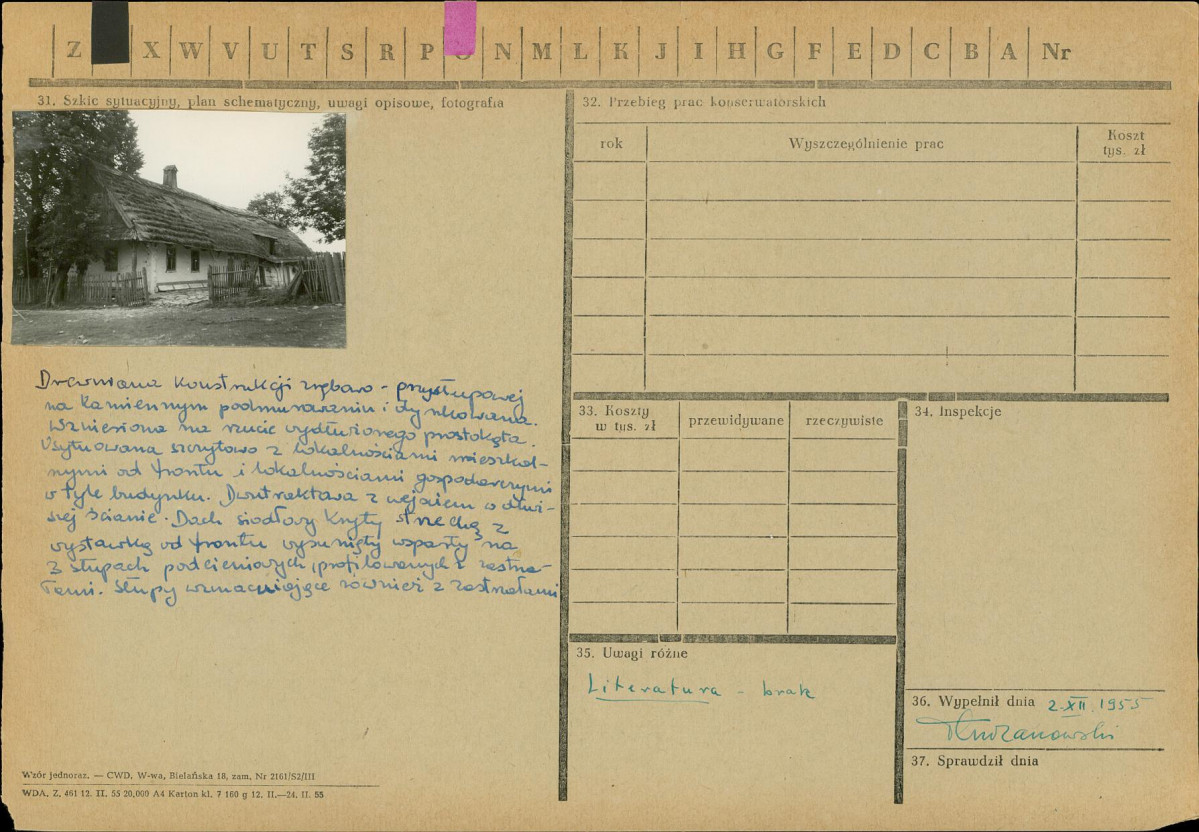 Z X W V U T S R P O N M L K J I H G F E D C B A Nr
31. Szkic sytuacyjny, plan schematyczny, uwagi opisowe, fotografia
Drewniana konstrukcji zrębowo - przysłupowej
na kamiennym podmurowaniu i tynkowana.
Wzniesiona na rzucie wydłużonego prostokąta.
Usytuowana szczytowo z lokalnościami mieszkal-
nymi od frontu i lokalnościami gospodarczymi
w tyle budynku. Dwutraktowa z wejściem w dłuż-
szej ścianie. Dach siodłowy kryty strzechą z
wystawką od frontu wysunięty wsparty na
3 słupach podcieniowych, profilowanych z zastrza-
łami. Słupy wzmacniające również z zastrzałami
Wzór jednoraz. — CWD, W-wa, Bielańska 18, zam. Nr 2161/S2/III
WDA. Z. 461 12. II. 55 20.000 A4 Karton kl. 7 160 g 12. II.—24. II. 55
32. Przebieg prac konserwatorskich
rok Wyszczególnienie prac Koszt
tys. zł
33. Koszty
w tys. zł przewidywane rzeczywiste
34. Inspekcje
35. Uwagi różne
Literatura - brak
36. Wypełnił dnia 2.XII.1955
37. Sprawdził dnia